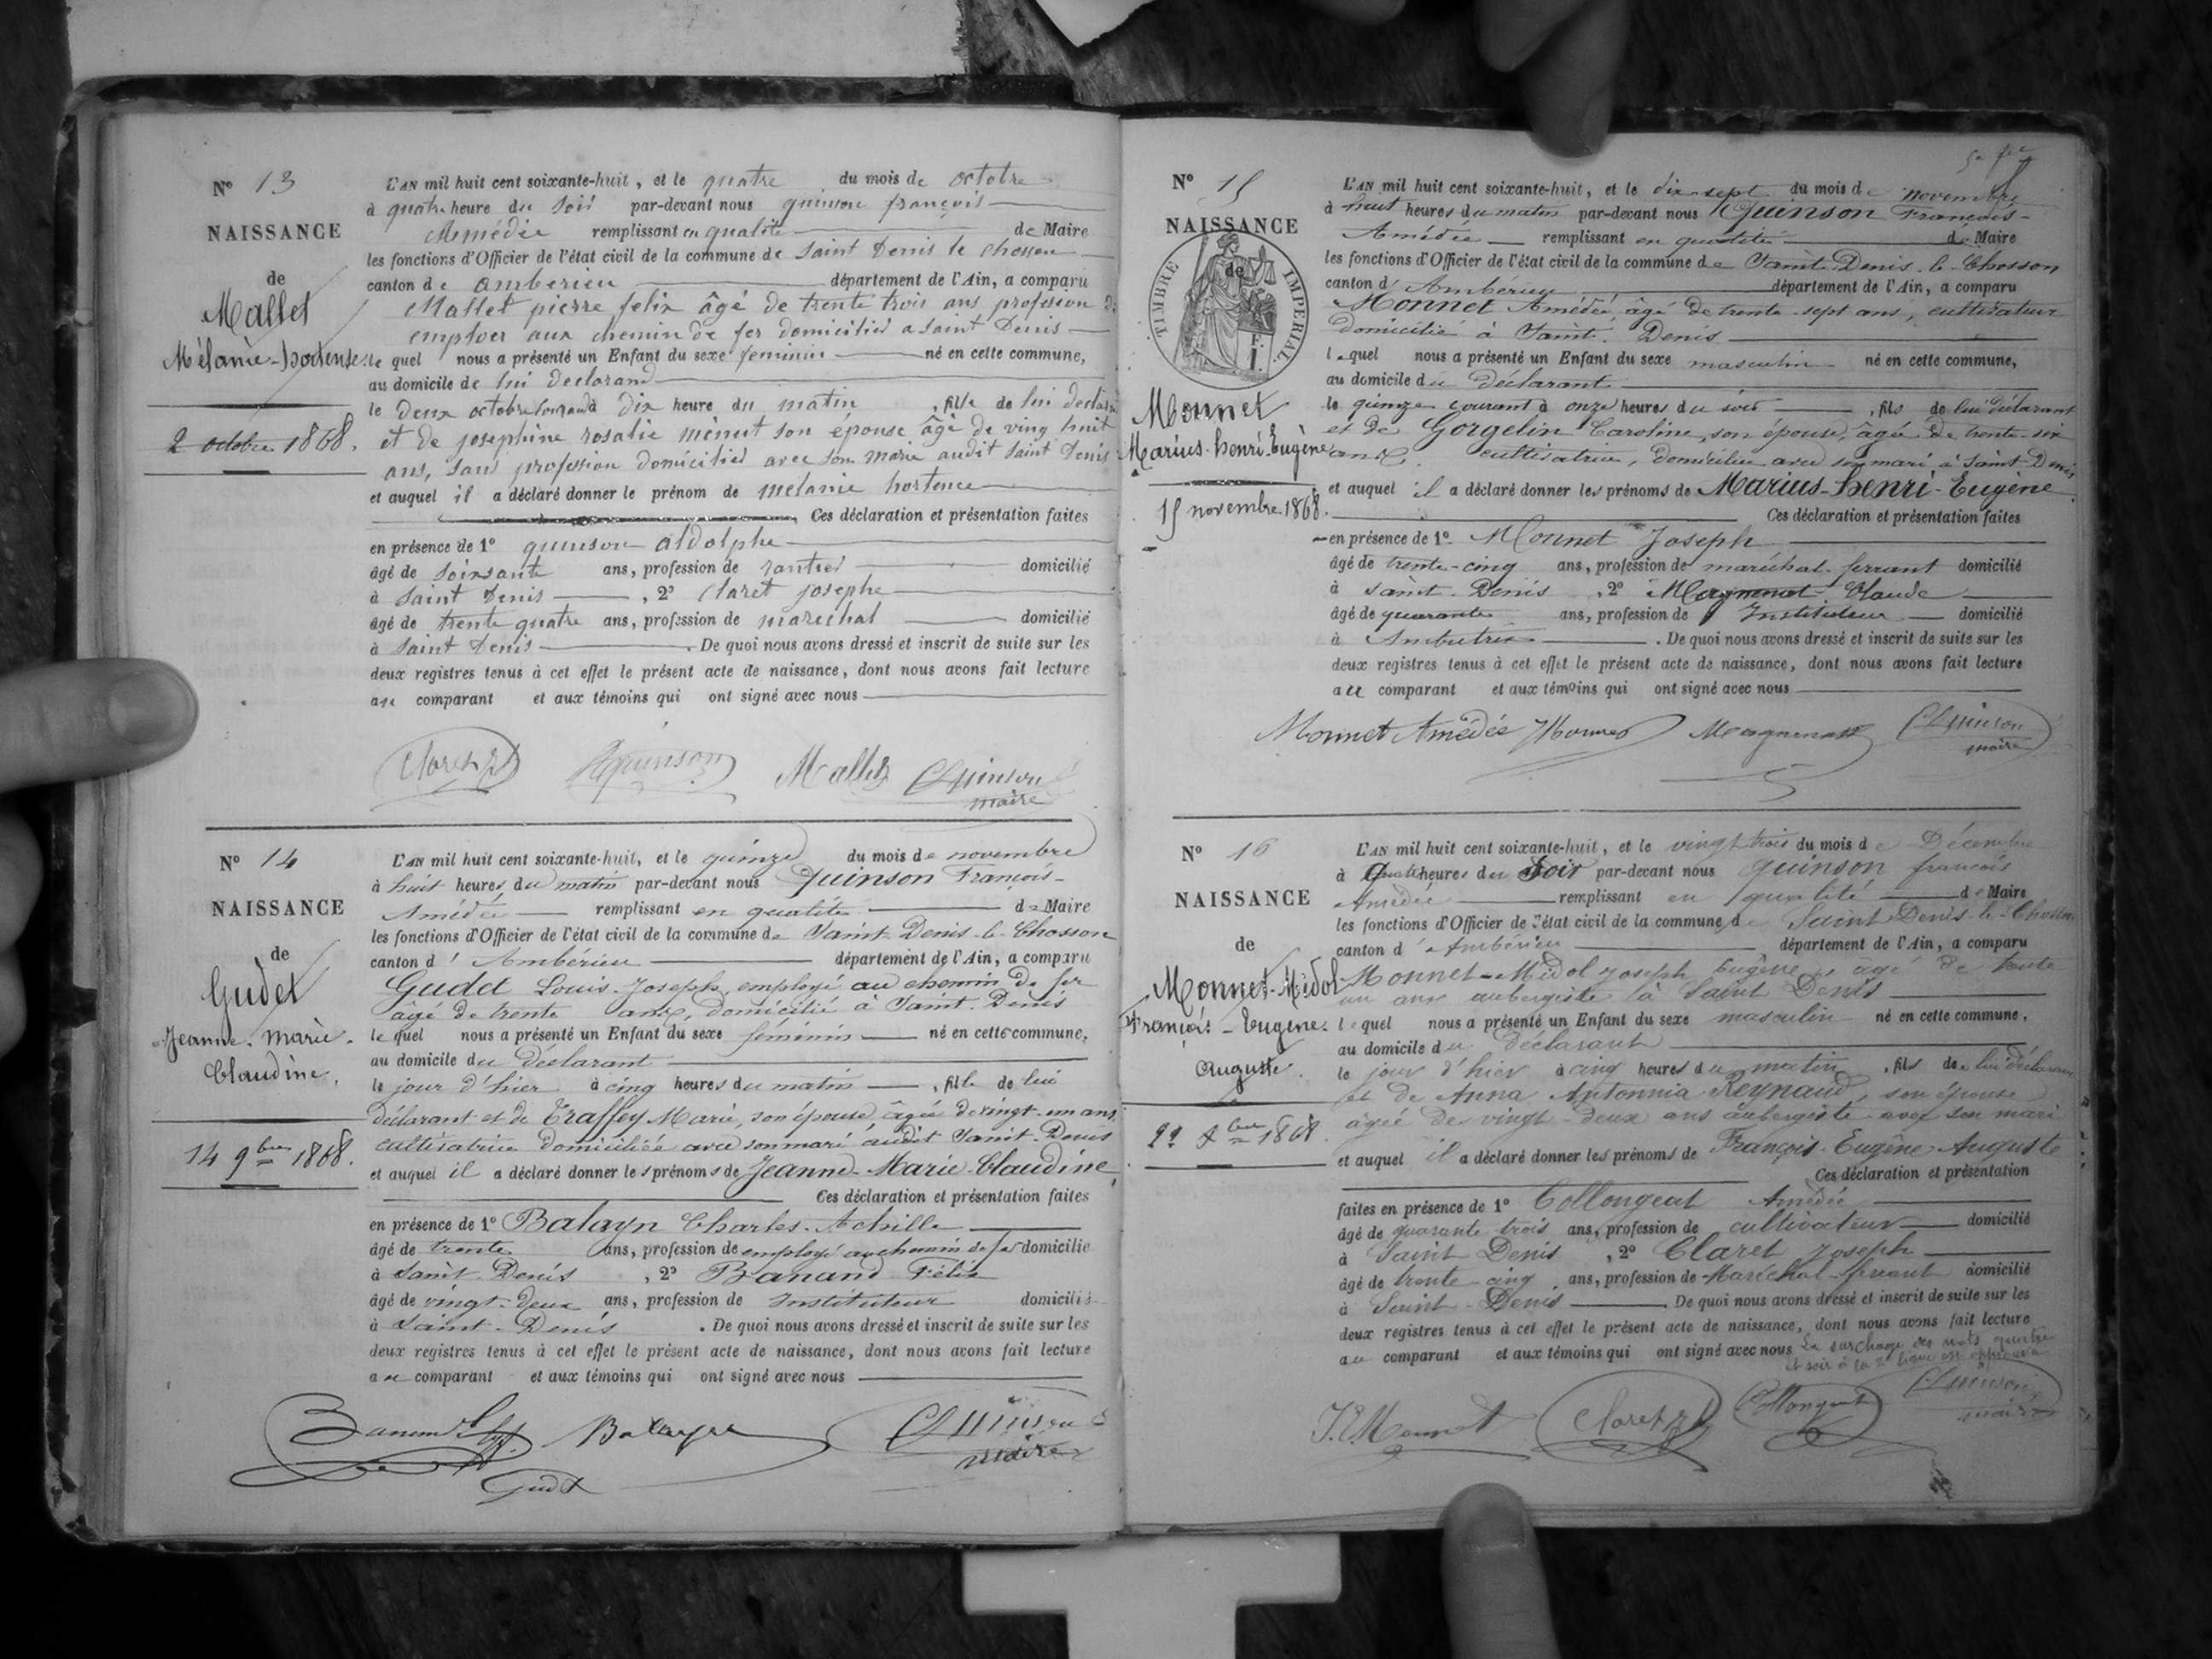 N° 13
NAISSANCE
de
Mallet
Mélanie-hortense
2 octobre 1868.
L'AN mil huit cent soixante-huit, et le quatre du mois de octobre
à quatre heure du soir par-devant nous quinson françois
Amédée remplissant en qualité de Maire
les fonctions d'Officier de l'état civil de la commune de Saint Denis le chosson
canton de amberieu département de l'Ain, a comparu
Mallet pierre felix âgé de trente trois ans profession
emploer aux chemin de fer domicilié a Saint Denis
le quel nous a présenté un Enfant du sexe feminin né en cette commune,
au domicile de lui declarand
le Deux octobre à dix heure du matin, fille de lui
et de josephine rosalie menut son épouse âgé de ving huit
ans, sans profession domicilié avec son marie audit Saint Denis
et auquel il a déclaré donner le prénom de melanie hortence
Ces déclaration et présentation faites
en présence de 1° quinson aldolphe
âgé de soixsante ans, profession de rantier domicilié
à Saint Denis, 2° Claret josephe
âgé de trente quatre ans, profession de marechal domicilié
à Saint Denis. De quoi nous avons dressé et inscrit de suite sur les
deux registres tenus à cet effet le présent acte de naissance, dont nous avons fait lecture
au comparant et aux témoins qui ont signé avec nous
Claret Quinson Mallet Quinson
maire
N° 14
NAISSANCE
de
Gudet
Jeanne-Marie-
Claudine.
14 9bre 1868.
L'AN mil huit cent soixante-huit, et le quinze du mois de novembre
à huit heures du matin par-devant nous Quinson François-
Amédée remplissant en qualité de Maire
les fonctions d'Officier de l'état civil de la commune de Saint-Denis-le-Chosson
canton d'Ambérieu département de l'Ain, a comparu
Gudet Louis-Joseph, employé au chemin de fer
âgé de trente ans, domicilié à Saint-Denis
lequel nous a présenté un Enfant du sexe féminin né en cette commune,
au domicile du déclarant
le jour d'hier à cinq heures du matin, fille de lui
déclarant et de Traffey Marie, son épouse, âgée de vingt-un ans,
cultivatrice domiciliée avec son mari audit Saint-Denis
et auquel il a déclaré donner les prénoms de Jeanne-Marie-Claudine
Ces déclaration et présentation faites
en présence de 1° Balayn Charles-Achille
âgé de trente ans, profession de employé au chemin de fer domicilié
à Saint-Denis, 2° Banand Félix
âgé de vingt-deux ans, profession de Instituteur domicilié
à Saint-Denis. De quoi nous avons dressé et inscrit de suite sur les
deux registres tenus à cet effet le présent acte de naissance, dont nous avons fait lecture
au comparant et aux témoins qui ont signé avec nous
Banand Balayn Quinson
maire
Gudet
N° 15
NAISSANCE
de
TIMBRE IMPERIAL
Monnet
Marius-henri-Eugène
15 novembre 1868.
L'AN mil huit cent soixante-huit, et le dix-sept du mois de novembre
à huit heures du matin par-devant nous Quinson François-
Amédée remplissant en qualité de Maire
les fonctions d'Officier de l'état civil de la commune de Saint-Denis-le-Chosson
canton d'Ambérieu département de l'Ain, a comparu
Monnet Amédée, âgé de trente-sept ans, cultivateur
domicilié à Saint-Denis
lequel nous a présenté un Enfant du sexe masculin né en cette commune,
au domicile du déclarant
le quinze courant à onze heures du soir, fils de lui déclarant
et de Gorgelin Caroline, son épouse, âgée de trente-six
ans, cultivatrice, domiciliée avec son mari à Saint-Denis
et auquel il a déclaré donner les prénoms de Marius-henri-Eugène
Ces déclaration et présentation faites
en présence de 1° Monnet Joseph
âgé de trente-cinq ans, profession de maréchal-ferrant domicilié
à Saint-Denis, 2° Claude
âgé de quarante ans, profession de Instituteur domicilié
à Ambutrix. De quoi nous avons dressé et inscrit de suite sur les
deux registres tenus à cet effet le présent acte de naissance, dont nous avons fait lecture
au comparant et aux témoins qui ont signé avec nous
Monnet Amédée JMonnet Quinson
maire
N° 16
NAISSANCE
de
Monnet-Midol
François-Eugène-
Auguste.
22 Xbre 1868.
L'AN mil huit cent soixante-huit, et le vingt trois du mois de Décembre
à quatre heures du soir par-devant nous quinson françois
Amédée remplissant en qualité de Maire
les fonctions d'Officier de l'état civil de la commune de Saint-Denis-le-Chosson
canton d'Ambérieu département de l'Ain, a comparu
Monnet-Midol Joseph Eugène, âgé de trente
un ans aubergiste à Saint Denis
lequel nous a présenté un Enfant du sexe masculin né en cette commune,
au domicile du Déclarant
le jour d'hier à cinq heures du matin, fils de lui déclarant
et de Anna Antonnia Reynaud, son épouse
âgée de vingt-deux ans aubergiste avec son mari
et auquel il a déclaré donner les prénoms de François-Eugène-Auguste
Ces déclaration et présentation
faites en présence de 1° Collongeat Amédée
âgé de quarante trois ans, profession de cultivateur domicilié
à Saint Denis, 2° Claret Joseph
âgé de trente-cinq ans, profession de Maréchal-ferrant domicilié
à Saint-Denis. De quoi nous avons dressé et inscrit de suite sur les
deux registres tenus à cet effet le présent acte de naissance, dont nous avons fait lecture
au comparant et aux témoins qui ont signé avec nous La surcharge des mots quatre
et soir à la 2e ligne est approuvée
J.E.Monnet Claret Collongeat Quinson
maire